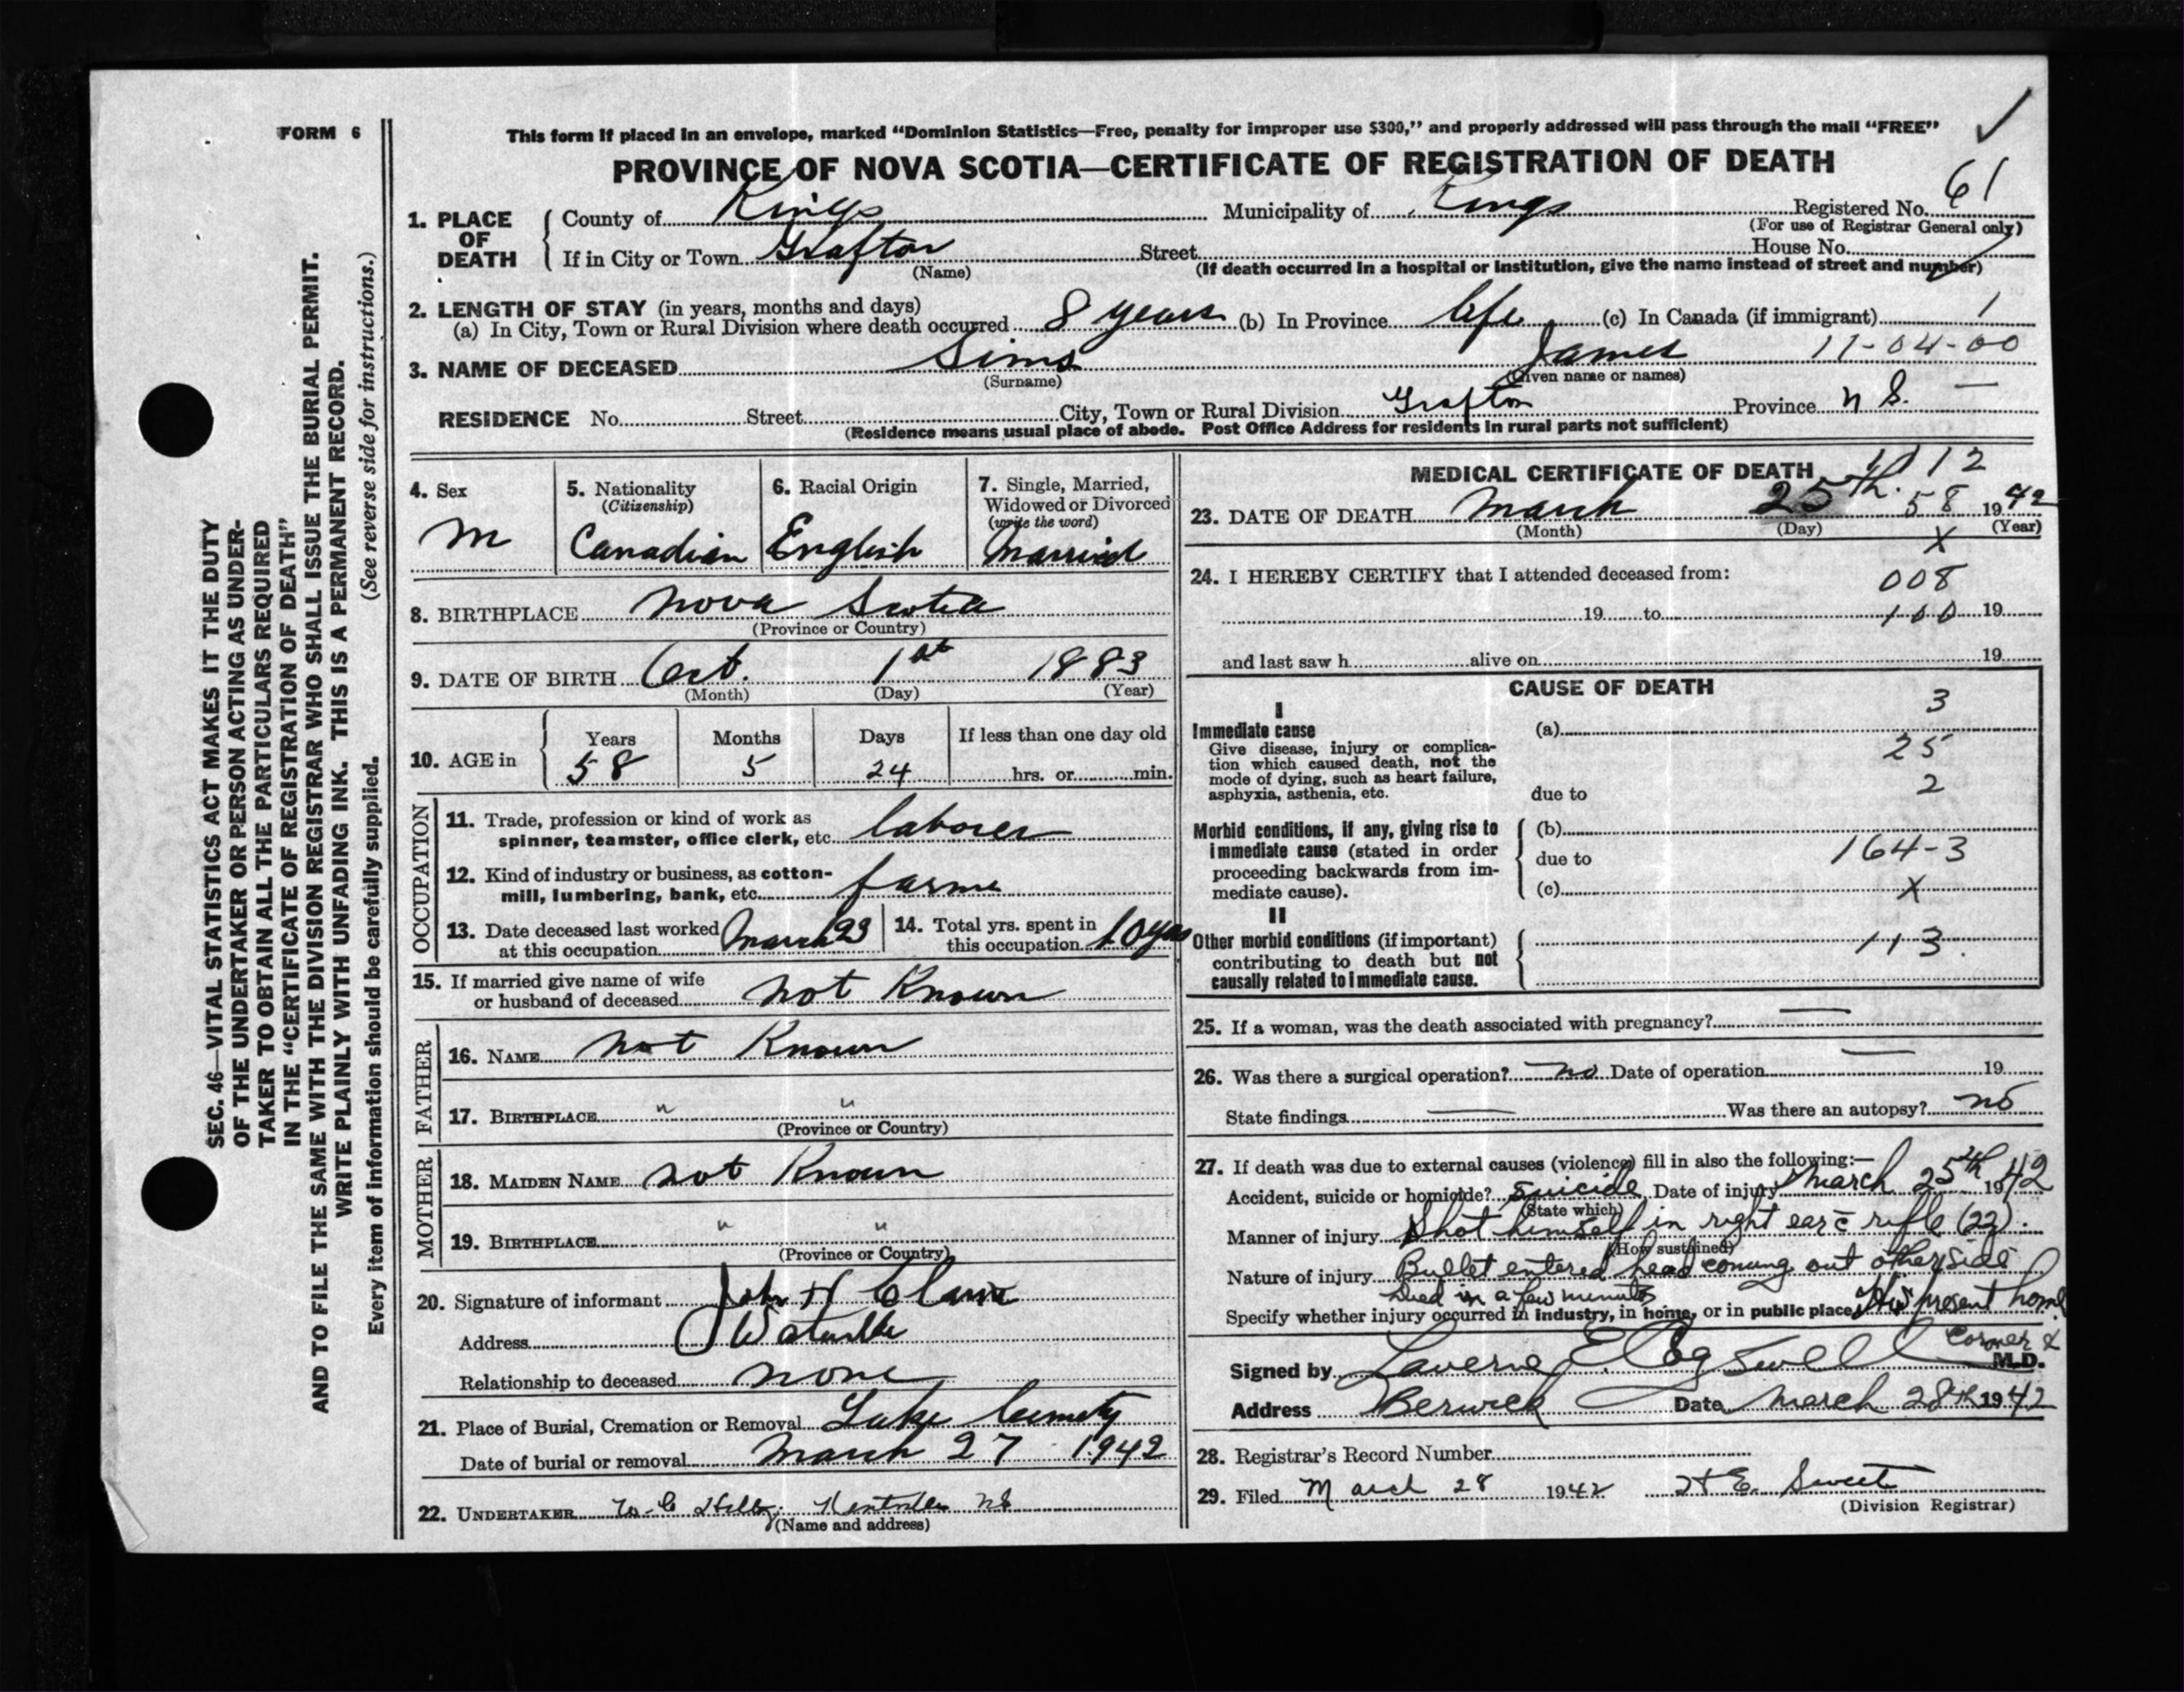 FORM 6
This form if placed in an envelope, marked "Dominion Statistics—Free, penalty for improper use $300," and properly addressed will pass through the mail "FREE"
PROVINCE OF NOVA SCOTIA—CERTIFICATE OF REGISTRATION OF DEATH
61
1. PLACE OF DEATH
County of Kings Municipality of Kings Registered No.
(For use of Registrar General only)
If in City or Town Grafton Street House No.
(Name) (If death occurred in a hospital or institution, give the name instead of street and number)
2. LENGTH OF STAY (in years, months and days)
(a) In City, Town or Rural Division where death occurred 8 years (b) In Province life (c) In Canada (if immigrant) 1
3. NAME OF DECEASED Sims James 11-04-00
(Surname) (Given name or names)
RESIDENCE No. Street City, Town or Rural Division Grafton Province N S. —
(Residence means usual place of abode. Post Office Address for residents in rural parts not sufficient)
4. Sex
M
5. Nationality
(Citizenship)
Canadian
6. Racial Origin
English
7. Single, Married,
Widowed or Divorced
(write the word)
Married
8. BIRTHPLACE Nova Scotia
(Province or Country)
9. DATE OF BIRTH Oct. 1st 1883
(Month) (Day) (Year)
10. AGE in
Years Months Days If less than one day old
58 5 24 hrs. or min.
OCCUPATION
11. Trade, profession or kind of work as
spinner, teamster, office clerk, etc. laborer
12. Kind of industry or business, as cotton-
mill, lumbering, bank, etc. farm
13. Date deceased last worked
at this occupation March 23
14. Total yrs. spent in
this occupation 10 yrs
15. If married give name of wife
or husband of deceased not Known
FATHER
16. NAME not Known
17. BIRTHPLACE " "
(Province or Country)
MOTHER
18. MAIDEN NAME not Known
19. BIRTHPLACE " "
(Province or Country)
20. Signature of informant John H
Address Waterville
Relationship to deceased none
21. Place of Burial, Cremation or Removal Lake
Date of burial or removal March 27 1942
22. UNDERTAKER W. C Kentville NS
(Name and address)
MEDICAL CERTIFICATE OF DEATH 12
23. DATE OF DEATH March 25th. 58 1942
(Month) (Day) (Year)
X
24. I HEREBY CERTIFY that I attended deceased from: 008
19 to 100 19
and last saw h alive on 19
CAUSE OF DEATH
3
I
Immediate cause (a)
Give disease, injury or complica-
tion which caused death, not the
mode of dying, such as heart failure,
asphyxia, asthenia, etc. due to
25
2
Morbid conditions, if any, giving rise to
immediate cause (stated in order
proceeding backwards from im-
mediate cause).
(b)
due to 164-3
(c) X
II
Other morbid conditions (if important)
contributing to death but not
causally related to immediate cause.
113.
25. If a woman, was the death associated with pregnancy? —
26. Was there a surgical operation? no Date of operation — 19
State findings — Was there an autopsy? no
27. If death was due to external causes (violence) fill in also the following:—
Accident, suicide or homicide? Suicide Date of injury March 25th 1942
(State which)
Manner of injury Shot himself in right ear c̄ rifle (22).
(How sustained)
Nature of injury Bullet entered head coming out other side
Died in a few minutes
Specify whether injury occurred in industry, in home, or in public place His present home
Signed by Laverne E. Cogswell Coroner & M.D.
Address Berwick Date March 28th 1942
28. Registrar's Record Number
29. Filed March 28 1942 H E. Sweet
(Division Registrar)
SEC. 46—VITAL STATISTICS ACT MAKES IT THE DUTY
OF THE UNDERTAKER OR PERSON ACTING AS UNDER-
TAKER TO OBTAIN ALL THE PARTICULARS REQUIRED
IN THE "CERTIFICATE OF REGISTRATION OF DEATH"
AND TO FILE THE SAME WITH THE DIVISION REGISTRAR WHO SHALL ISSUE THE BURIAL PERMIT.
WRITE PLAINLY WITH UNFADING INK. THIS IS A PERMANENT RECORD.
Every item of information should be carefully supplied. (See reverse side for instructions.)